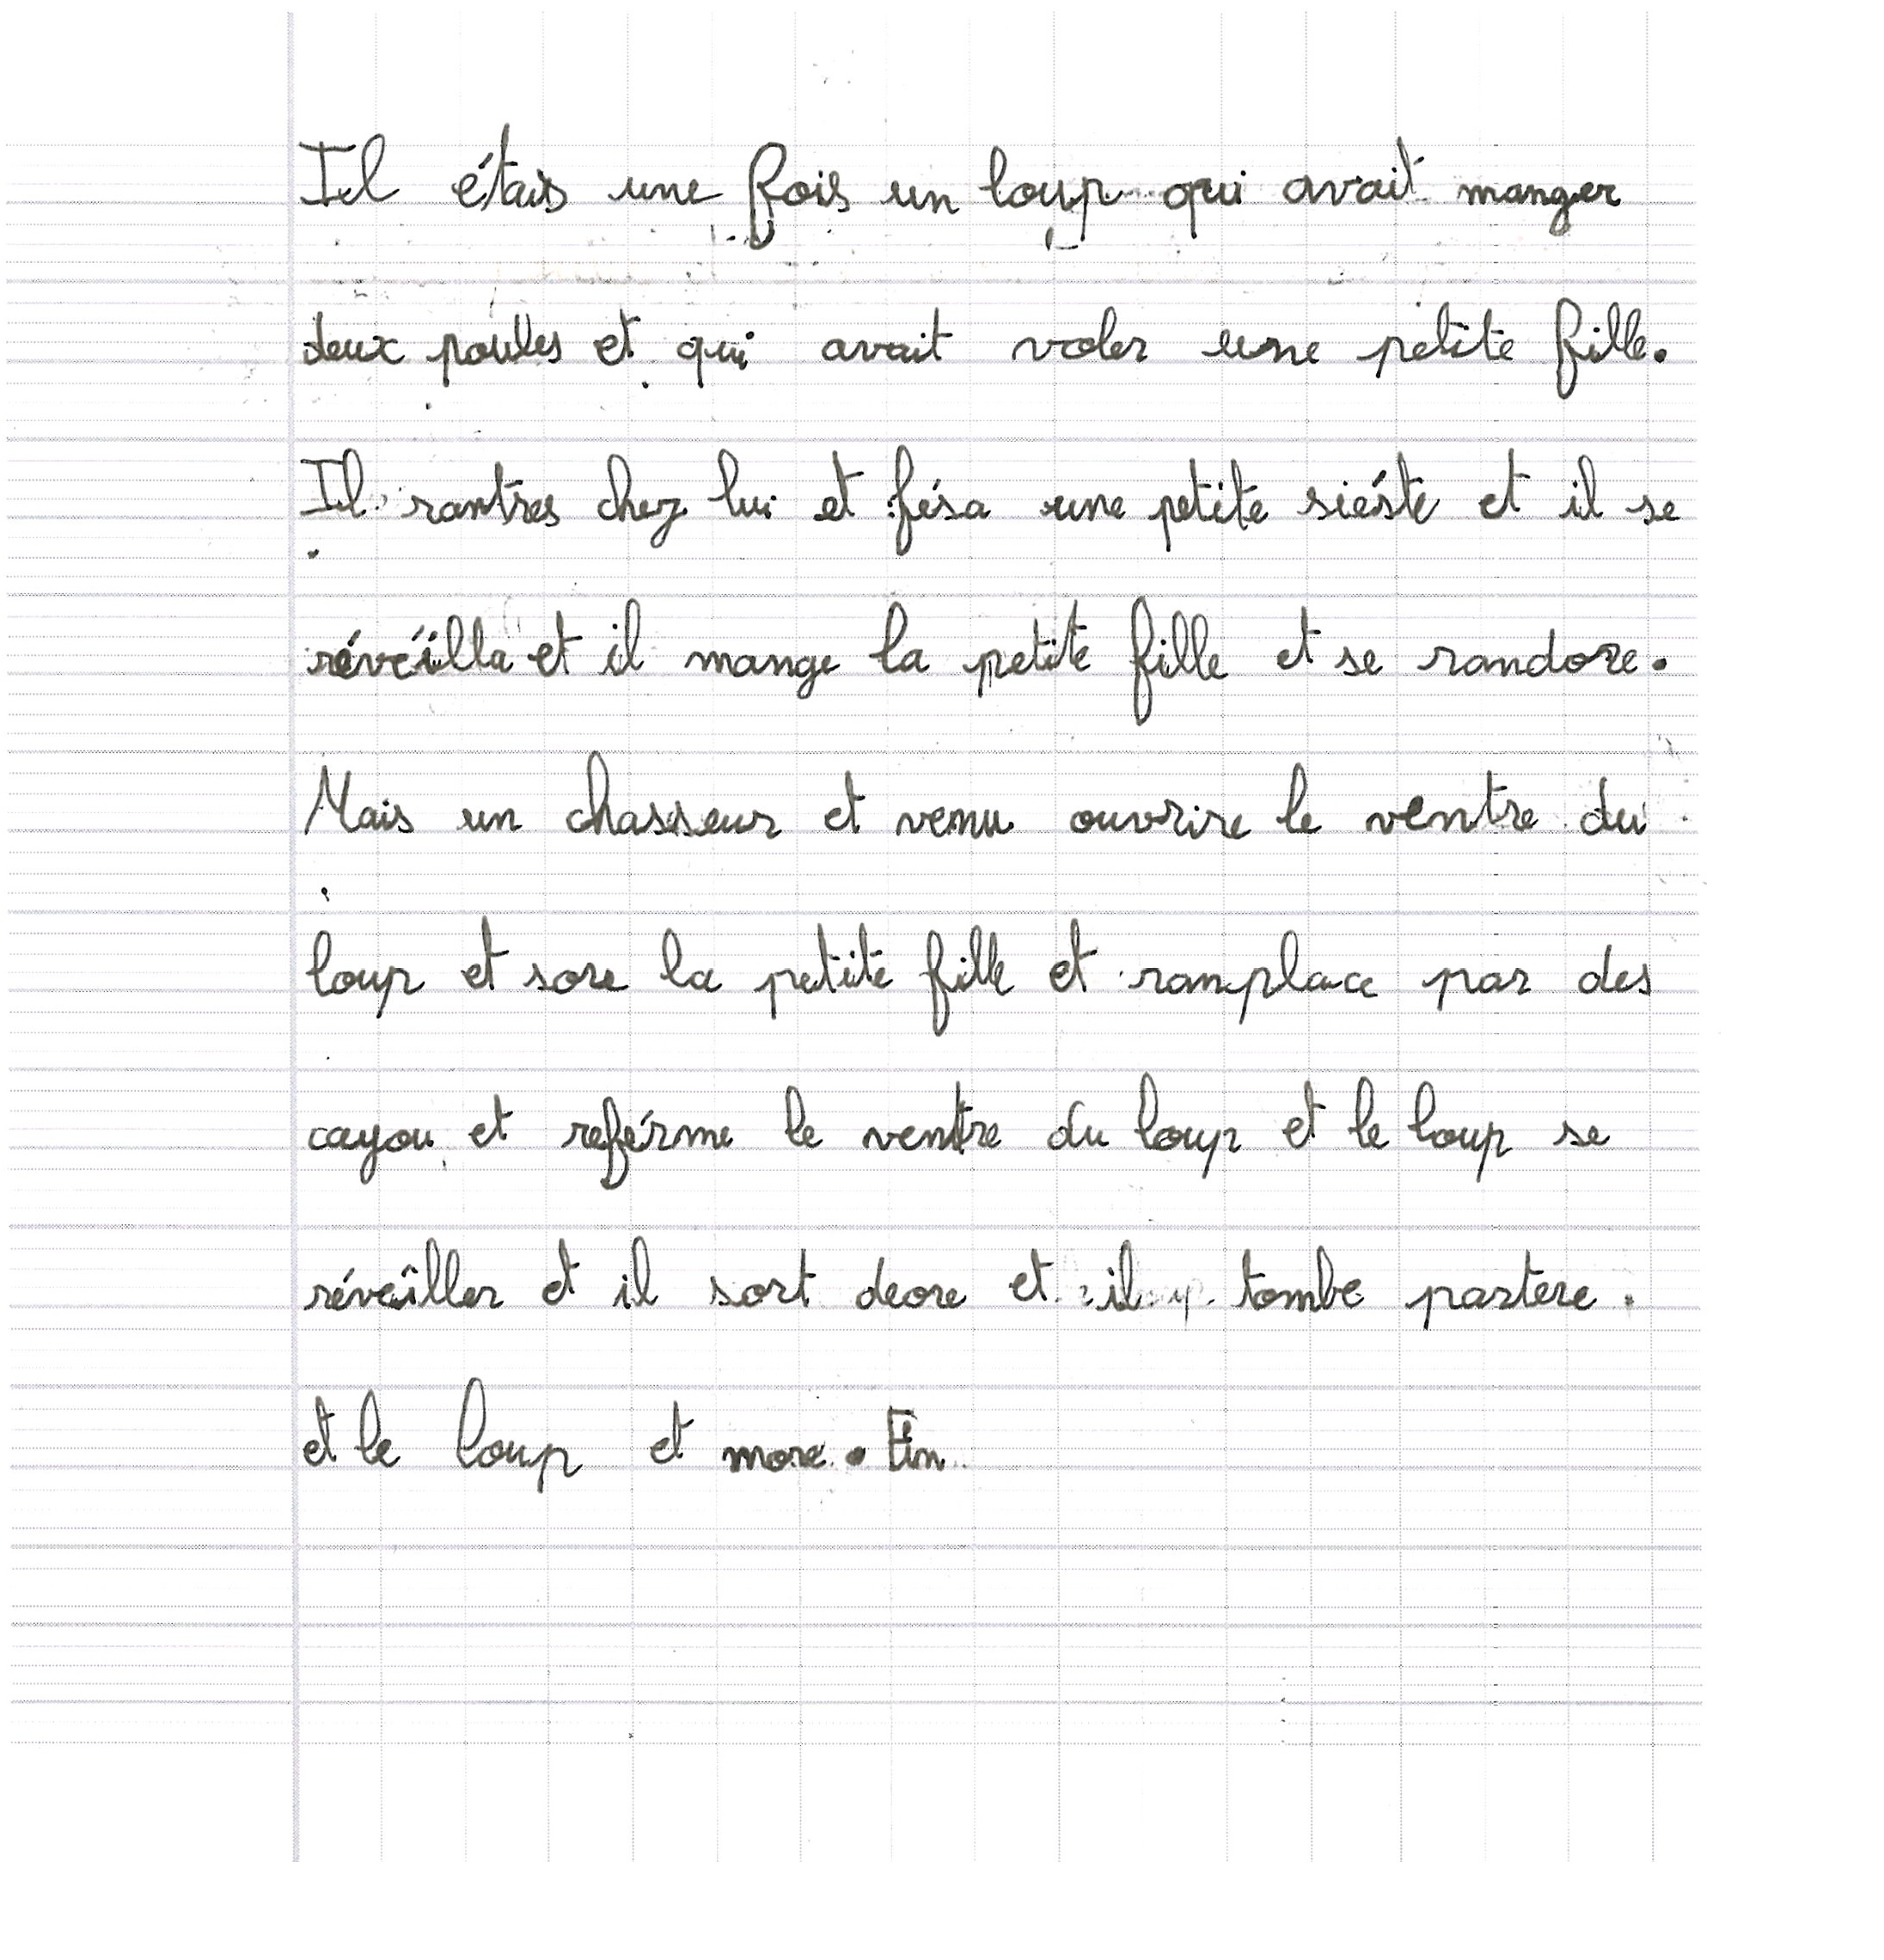 Il étais une fois un loup qui avait manger
deux poules et qui avait voler une petite fille.
Il rantres chez lui et fésa une petite siéste et il se
révéilla et il mange la petite fille et se randore.
Mais un chasseur et venu ouvrire le ventre du
loup et sore la petite fille et ramplace par des
cayou et reférme le ventre du loup et le loup se
réveîller et il sort deore et il tombe partere.
et le loup et more. Fin